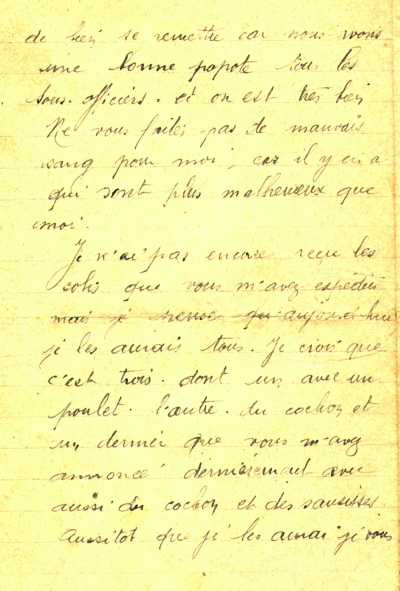 de bien se remettre car nous avons
une bonne popote tous les
sous-officiers. et on est très bien
Ne vous faites pas de mauvais
sang pour moi, car il y en a
qui sont plus malheureux que
moi.
Je n'ai pas encore reçu les
colis que vous m'avez expédiés
mais je pense qu'aujourd'hui
je les aurais tous. Je crois que
c'est trois. dont un avec un
poulet. l'autre. du cochon et
un dernier que vous m'avez
annoncé dernièrement avec
aussi du cochon et des saucisses
Aussitot que je les aurai je vous